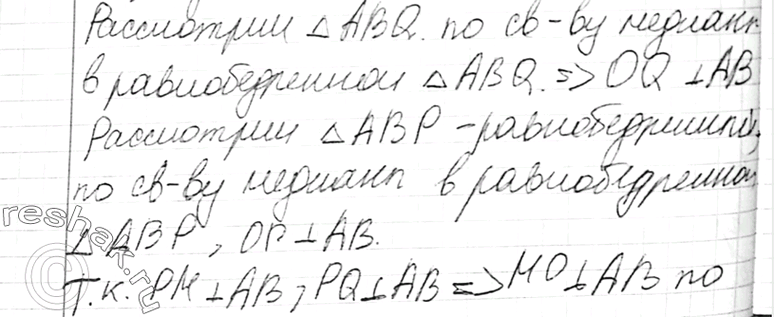 Рассмотрим △ABQ. по св-ву медиан
в равнобедренном △ABQ. => OQ ⊥ AB
Рассмотрим △ABP - равнобедренный,
по св-ву медиан в равнобедренном
△ABP, OP ⊥ AB.
Т.к. PM ⊥ AB, PQ ⊥ AB => MO ⊥ AB по
reshak.ru